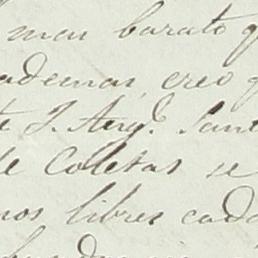 mas barato q
ademas, creo q
te J. Aug.º Sant
de Coletas se
nos libres cada